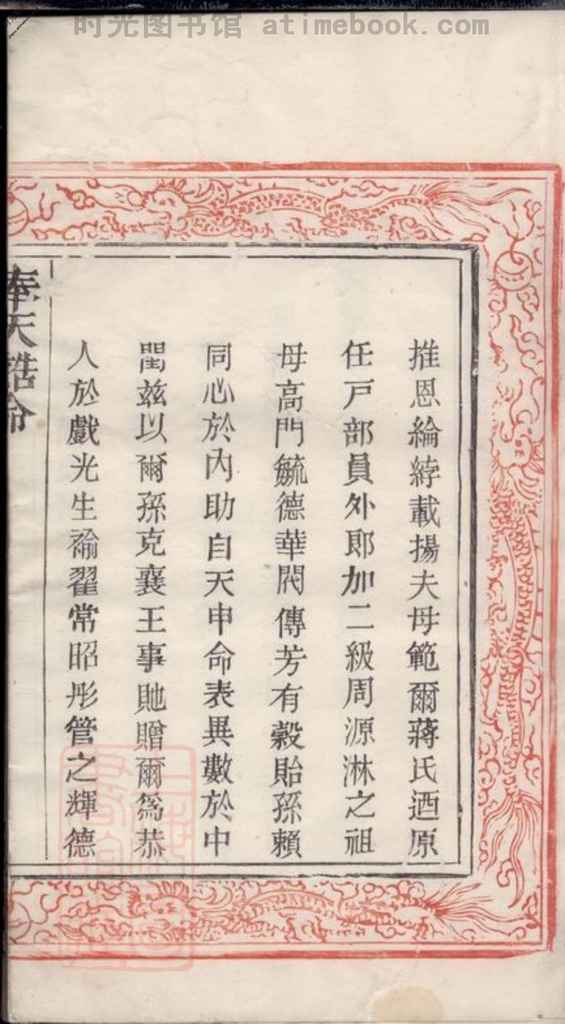 时光图书馆 atimebook.com
推恩綸綍載揚夫母範爾蔣氏迺原
任戸部員外郎加二級周源淋之祖
母高門毓德華閥傳芳有穀貽孫賴
同心於内助自天申命表異數於中
閨兹以爾孫克襄王事貤贈爾爲恭
人於戲光生褕翟常昭彤管之輝德
奉天誥命